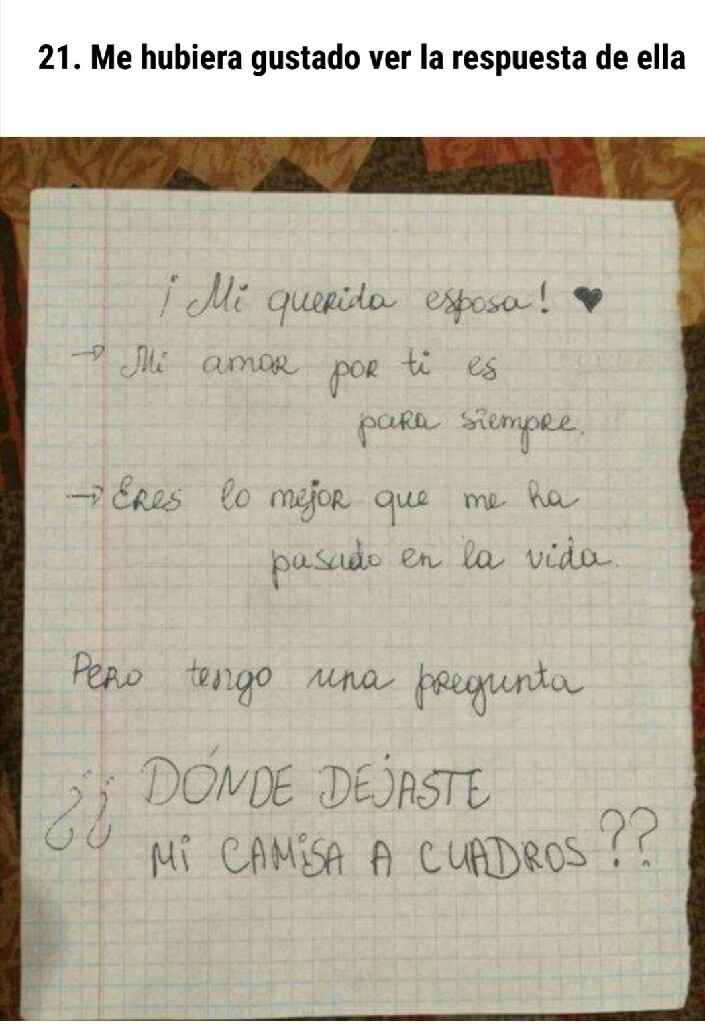 21. Me hubiera gustado ver la respuesta de ella
¡Mi querida esposa! ♥
→ Mi amor por ti es
para siempre.
→ Eres lo mejor que me ha
pasado en la vida.
Pero tengo una pregunta
¿¿ DÓNDE DEJASTE
Mi CAMiSA A CUADROS??